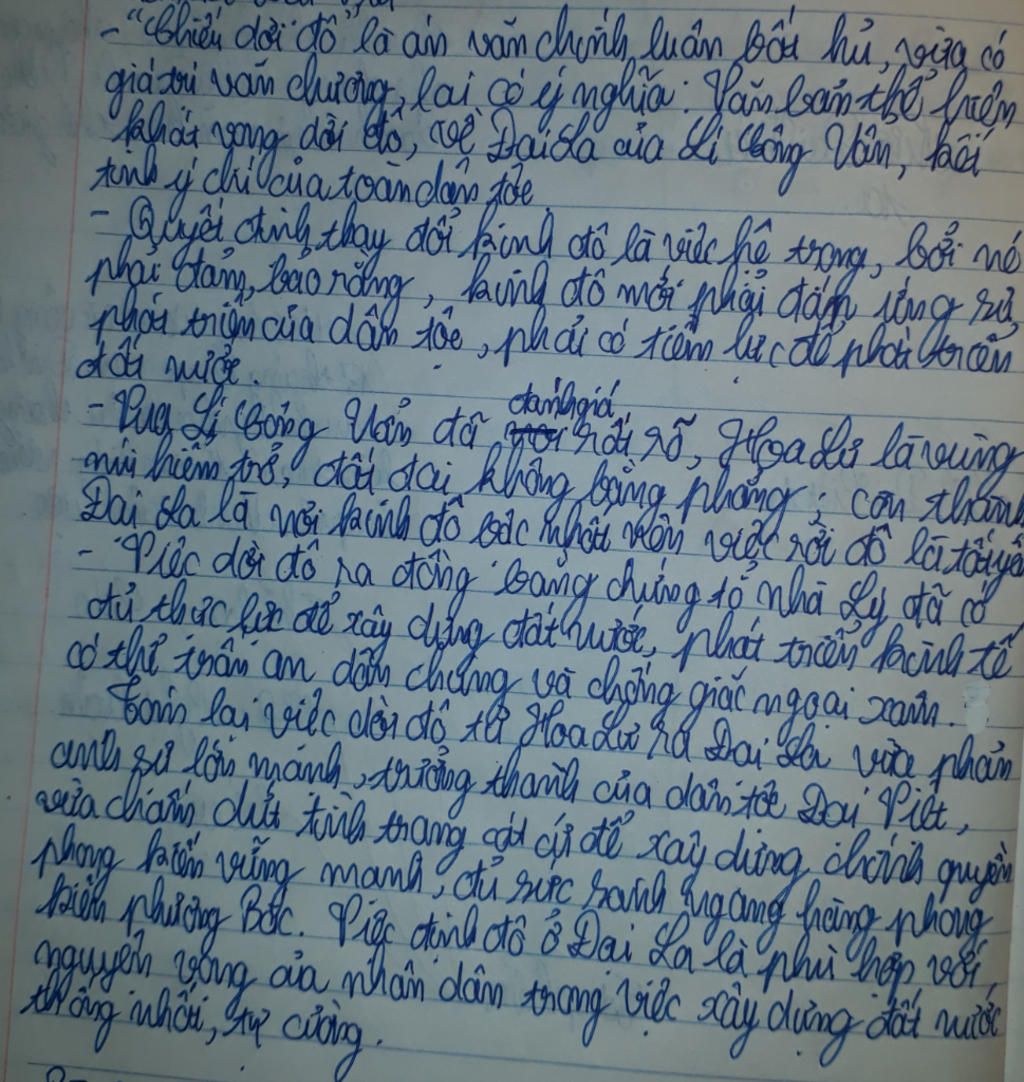 - "Chiếu dời đô" là án văn chính luận bất hủ, vừa có
giá trị văn chương, lại có ý nghĩa. Văn bản thể hiện
khát vọng dời đô, về Đại La của Lí Công Uẩn, kết
tinh ý chí của toàn dân tộc
- Quyết định thay đổi kinh đô là việc hệ trọng, bởi nó
phải đảm bảo rằng, kinh đô mới phải đáp ứng sự
phát triển của dân tộc, phải có tiềm lực để phát triển
đất nước.
- Vua Lí Công Uẩn đã đánh giá rất rõ, Hoa Lư là vùng
núi hiểm trở, đất đai không bằng phẳng; còn thành
Đại La là nơi kinh đô bậc nhất nên việc rời đô là tất yế
- Việc dời đô ra đồng bằng chứng tỏ nhà Lý đã có
đủ thực lực để xây dựng đất nước, phát triển kinh tế
có thể trấn an dân chúng và chống giặc ngoại xâm.
Tóm lại việc dời đô từ Hoa Lư ra Đại La vừa phản
ánh sự lớn mạnh, trưởng thành của dân tộc Đại Việt,
vừa chấm dứt tình trạng cát cứ để xây dựng chính quyền
phong kiến vững mạnh, đủ sức sánh ngang hàng phong
kiến phương Bắc. Việc định đô ở Đại La là phù hợp với
nguyện vọng của nhân dân trong việc xây dựng đất nước
thống nhất, tự cường.